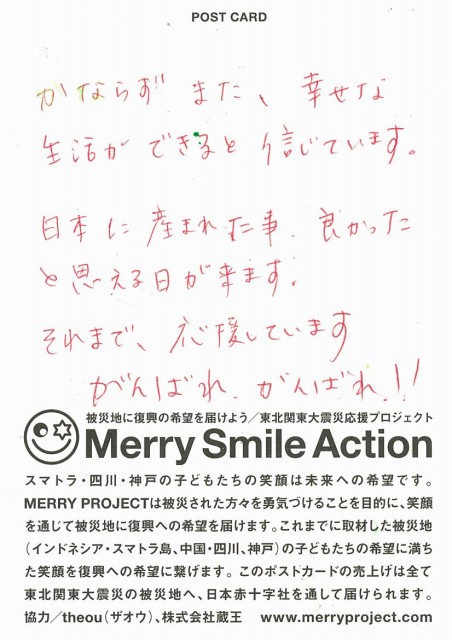 POST CARD
かならず また、幸せな
生活が できると 信じています。
日本に 産まれた事、良かった
と思える日が来ます。
それまで、応援しています
がんばれ、がんばれ!!
被災地に復興の希望を届けよう／東北関東大震災応援プロジェクト
Merry Smile Action
スマトラ・四川・神戸の子どもたちの笑顔は未来への希望です。
MERRY PROJECTは被災された方々を勇気づけることを目的に、笑顔
を通じて被災地に復興への希望を届けます。これまでに取材した被災地
（インドネシア・スマトラ島、中国・四川、神戸）の子どもたちの希望に満ち
た笑顔を復興への希望に繋げます。このポストカードの売上げは全て
東北関東大震災の被災地へ、日本赤十字社を通して届けられます。
協力／theou（ザオウ）、株式会社蔵王　www.merryproject.com